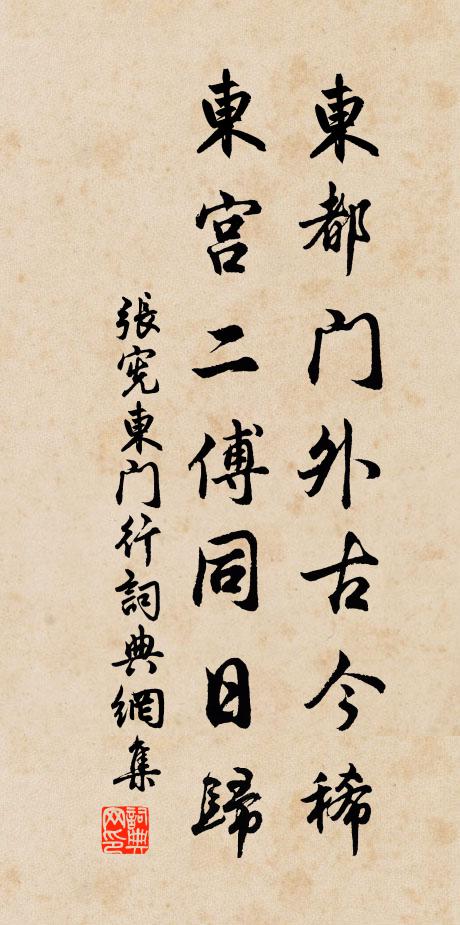 東都门外古今稀
東宫二傅同日歸
張憲東门行詞典網集
詞典網印